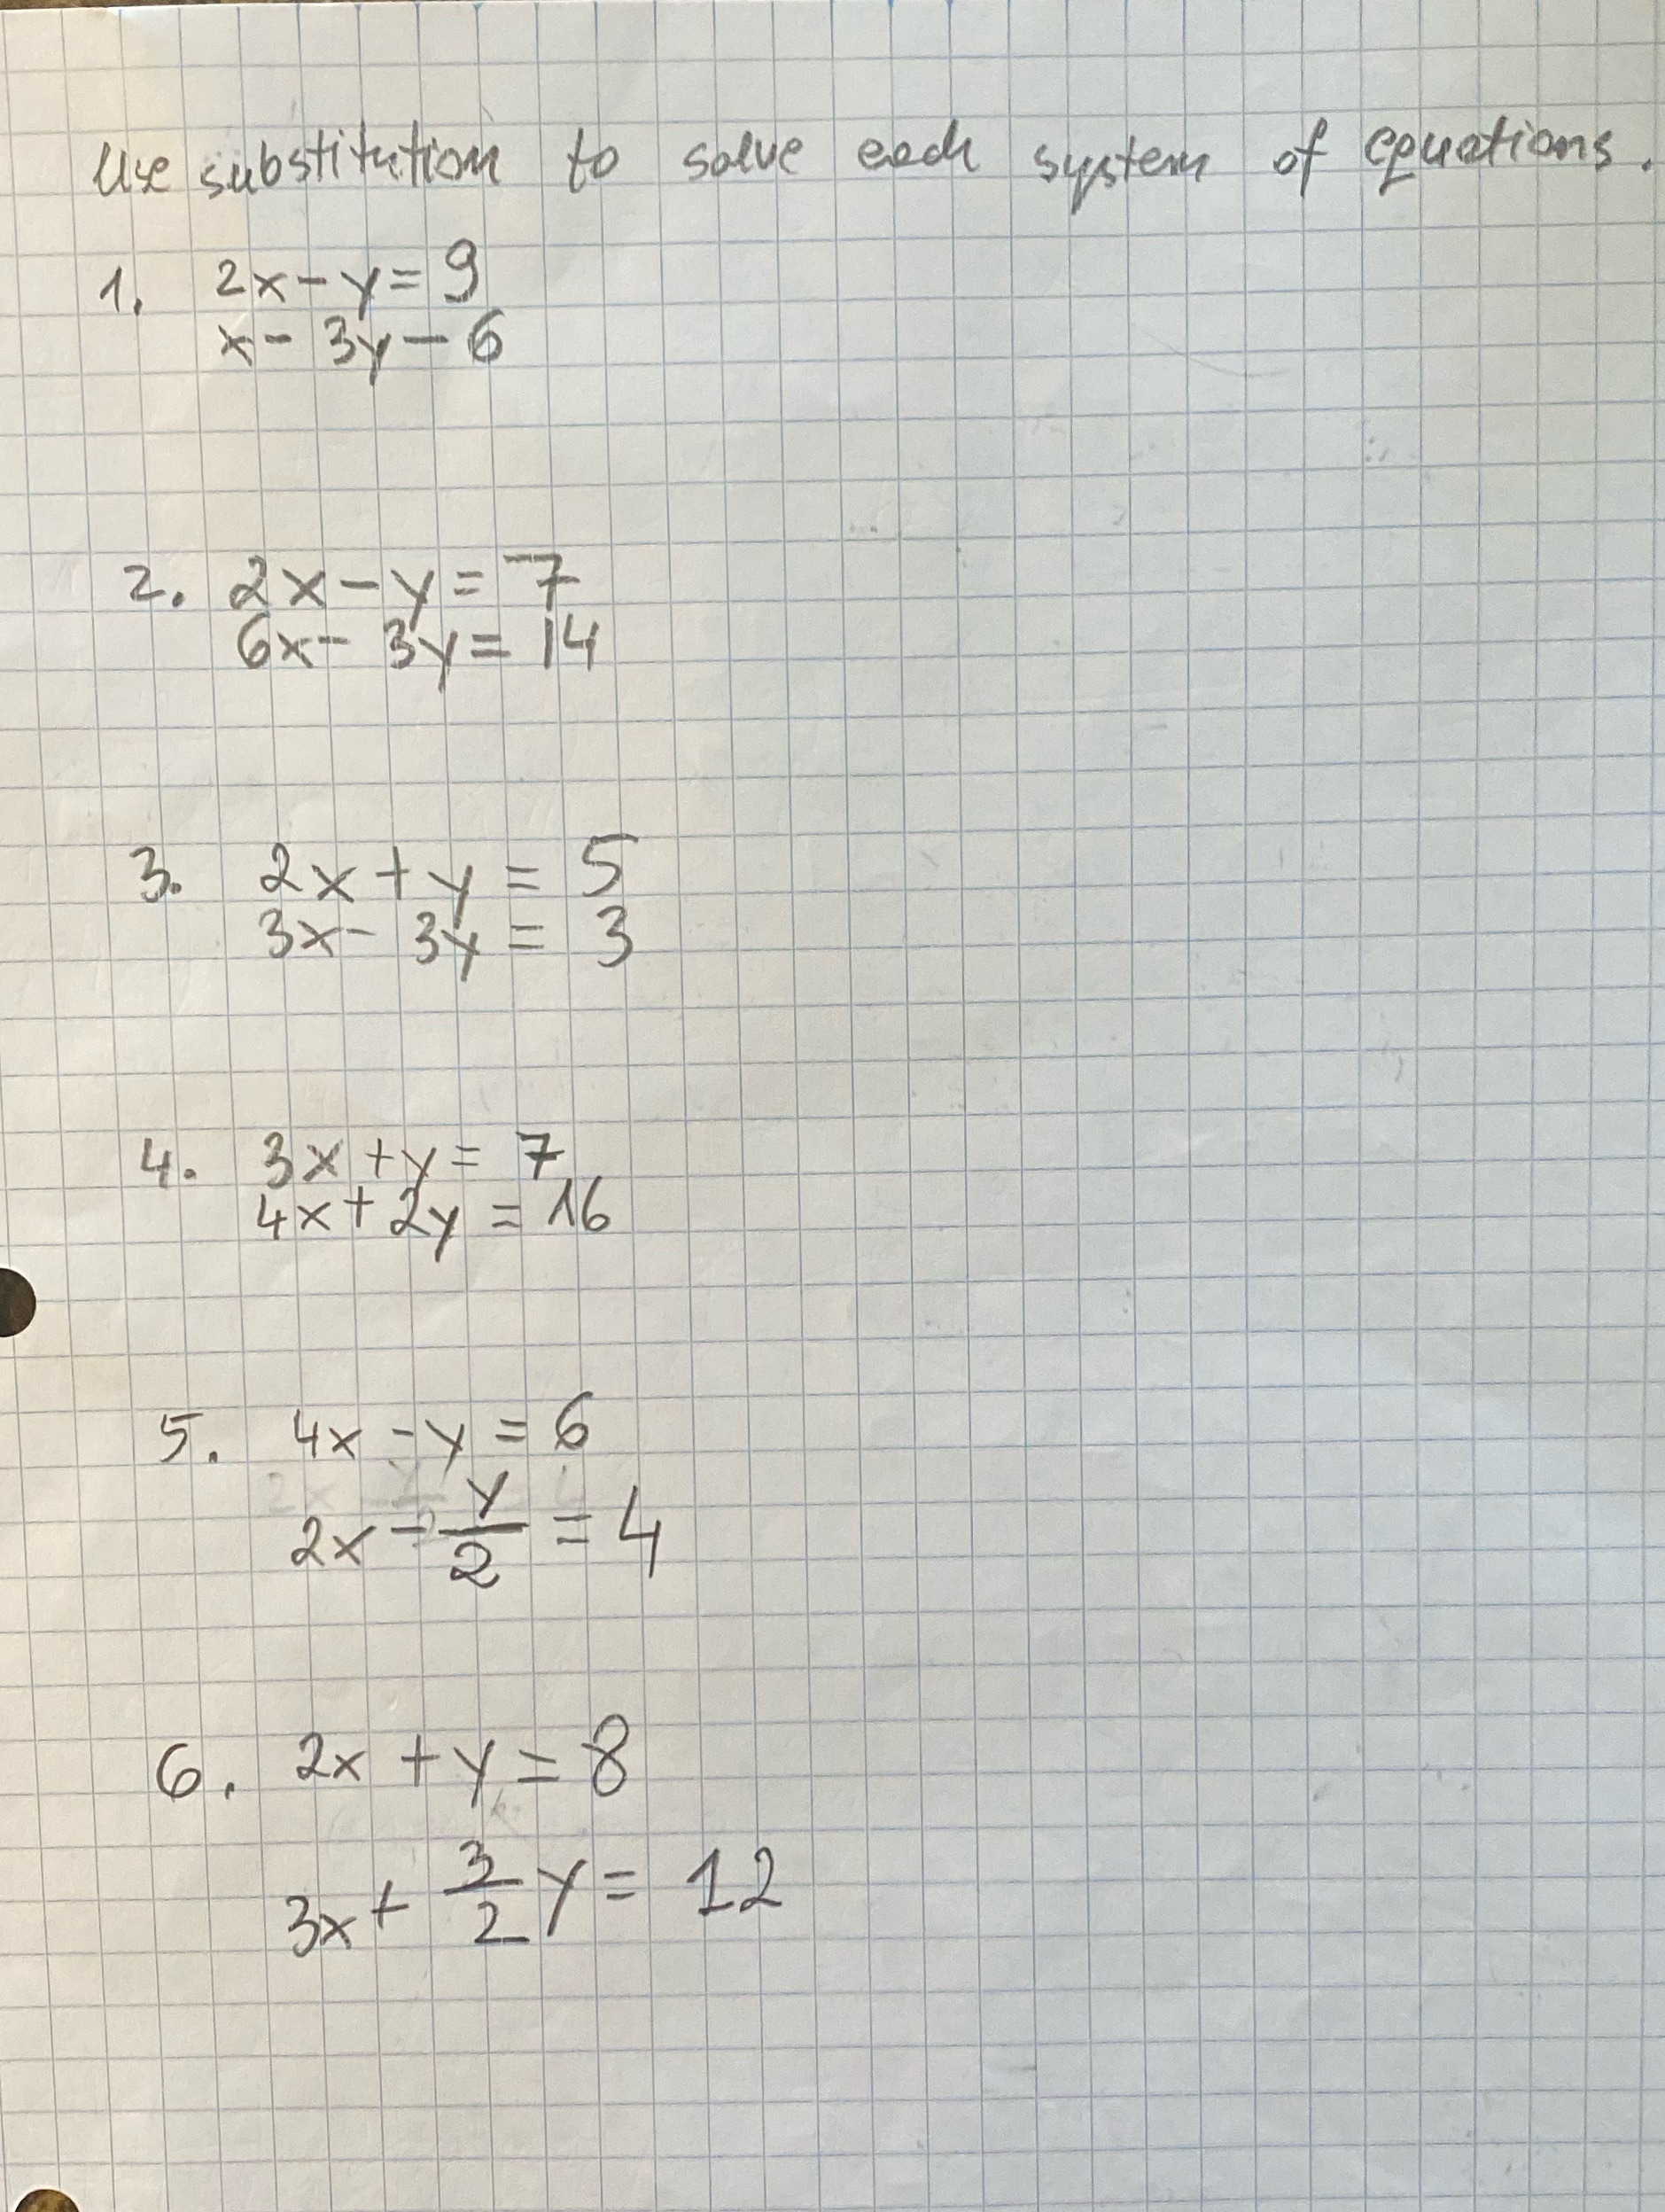 Use substitution to solve each system of equations.
1. 2x - y = 9
x - 3y - 6
2. 2x - y = 7
6x - 3y = 14
3. 2x + y = 5
3x - 3y = 3
4. 3x + y = 7
4x + 2y = 16
5. 4x - y = 6
2x - y/2 = 4
6. 2x + y = 8
3x + 3/2 y = 12